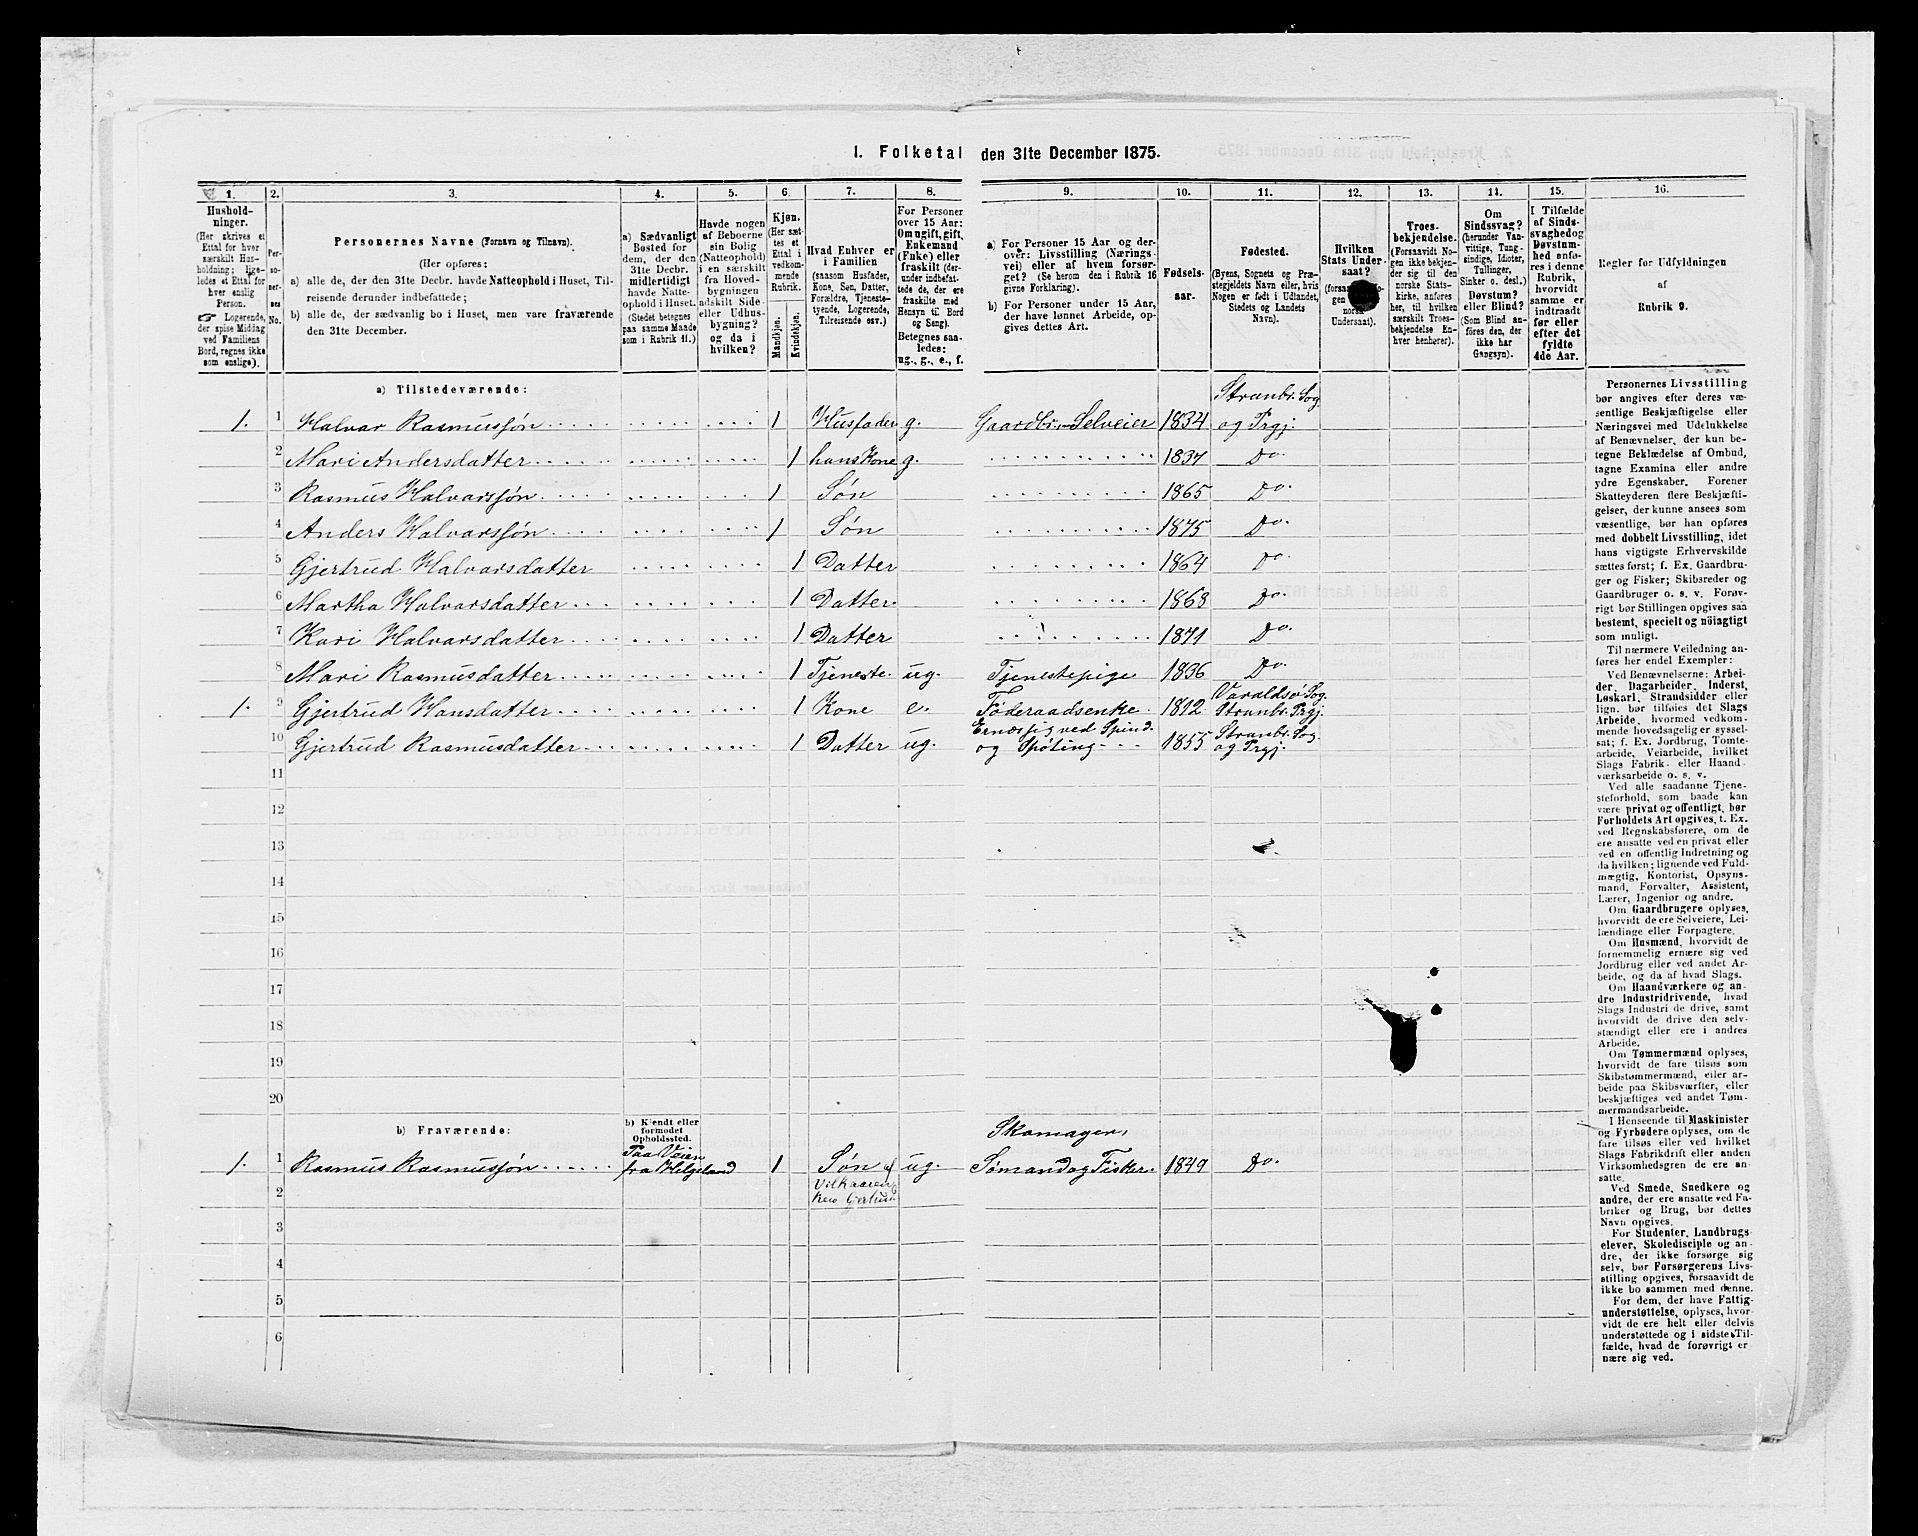 I. Folketal den 31te December 1875.
1. 2. 3. 4. 5. 6. 7. 8. 9. 10. 11. 12. 13. 14. 15. 16.
Hushold-
ninger.
(Her skrives et
Ettal for hver
særskilt Hus-
holdning; lige-
ledes et Ettal for
hver enslig
Person.
Logerende,
der spise Middag
ved Familiens
Bord, regnes ikke
som enslige).
Per-
so-
ner-
nes
No.
Personernes Navne (Fornavn og Tilnavn).
(Her opføres:
a) alle de, der den 31te Decbr. havde Natteophold i Huset, Til-
reisende derunder indbefattede;
b) alle de, der sædvanlig bo i Huset, men vare fraværende
den 31te December.
a) Sædvanligt
Bosted for
dem, der den
31te Decbr.
midlertidigt
havde Natte-
ophold i Huset.
(Stedet betegnes
paa samme Maade
som i Rubrik 11.)
Havde nogen
af Beboerne
sin Bolig
(Natteophold)
i en særskilt
fra Hoved-
bygningen
adskilt Side-
eller Udhus-
bygning?
og da i
hvilken?
Kjøn.
(Her sæt-
tes et
Ettal i
vedkom-
mende
Rubrik.
Mandkjøn.
Kvindekjøn.
Hvad Enhver er
i Familien
(saasom Husfader,
Kone, Søn, Datter,
Forældre, Tjeneste-
tyende, Logerende,
Tilreisende osv.)
For Personer
over 15 Aar:
Om ugift, gift,
Enkemand
(Enke) eller
fraskilt (der-
under indbefat-
tede de, der ere
fraskilte med
Hensyn til Bord
og Seng).
Betegnes saa-
ledes:
ug., g., e., f.
a) For Personer 15 Aar og der-
over: Livsstilling (Nærings-
vei) eller af hvem forsør-
get? (Se herom den i Rubrik 16
givne Forklaring).
b) For Personer under 15 Aar,
der have lønnet Arbeide, op-
gives dettes Art.
Fødsels-
aar.
Fødested.
(Byens, Sognets og Præ-
stegjeldets Navn eller, hvis
Nogen er født i Udlandet,
Stedets og Landets
Navn).
Hvilken
Stats Under-
saat?
norsk
Undersaat).
Troes-
bekjendelse.
(Forsaavidt No-
gen ikke bekjen-
der sig til den
norske Stats-
kirke, anføres
her, til hvilken
særskilt Troes-
bekjendelse En-
hver henhører).
Om
Sindssvag?
(herunder Van-
vittige, Tung-
sindige, Idioter,
Tullinger,
Sinker o. desl.)
Døvstum?
eller Blind?
(Som Blind an-
føres den, der
ikke har
Gangsyn).
I Tilfælde
af Sinds-
svaghed og
Døvstum-
hed anfø-
res i denne
Rubrik,
hvorvidt
samme er
indtraadt
før eller
efter det
fyldte
4de Aar.
Regler for Udfyldningen
af
Rubrik 9.
a) Tilstedeværende:
Strandv. Sog.
1. 1 Halvar Rasmussøn 1 Husfader g. Gaardbr.-Selveier 1834 og Prgj.
2 Mari Andersdatter 1 hans Kone g. 1837 Do.
3 Rasmus Halvarssøn 1 Søn 1865 Do.
4 Anders Halvarssøn 1 Søn 1875 Do.
5 Gjertrud Halvarsdatter 1 Datter 1864 Do.
6 Martha Halvarsdatter 1 Datter 1868 Do.
7 Kari Halvarsdatter 1 Datter 1871 Do.
8 Mari Rasmusdatter 1 Tjeneste. ug. Tjenestepige 1836 Do.
Varaldsø Sog.
1. 9 Gjertrud Hansdatter 1 Kone e. Føderaadsenke. 1812. Strandv. Prgj.
Ernær sig ved Spind. Strandv. Sog.
10 Gjertrud Rasmusdatter 1 Datter ug. og Spøting 1855 og Prgj.
11
12
13
14
15
16
17
18
19
20
b) Fraværende:
b) Kjendt eller
formodet
Opholdssted.
Paa Veien Skomager,
1. 1 Rasmus Rasmussøn fra Helgeland 1 Søn af ug. Sømand og Fisker. 1849 Do.
2
3
4
5
6
Personernes Livsstilling
bør angives efter deres væ-
sentlige Beskjæftigelse eller
Næringsvei med Udelukkelse
af Benævnelser, der kun be-
tegne Beklædelse af Ombud,
tagne Examina eller andre
ydre Egenskaber. Forener
Skatteyderen flere Beskjæfti-
gelser, der kunne ansees som
væsentlige, bør han opføres
med dobbelt Livsstilling, idet
hans vigtigste Erhvervskilde
sættes først; f. Ex. Gaardbru-
ger og Fisker; Skibsreder og
Gaardbruger o. s. v. Forøv-
rigt bør Stillingen opgives saa
bestemt, specielt og nöiagtigt
som muligt.
Til nærmere Veiledning an-
føres her endel Exempler:
Ved Benævnelserne: Arbei-
der, Dagarbeider, Inderst,
Løskarl, Strandsidder eller
lign. bør tilføies det Slags
Arbeide, hvormed vedkom-
mende hovedsagelig er syssel-
sat; f. Ex. Jordbrug, Tomte-
arbeide, Veiarbeide, hvilket
Slags Fabrik- eller Haand-
værksarbeide o. s. v.
Ved alle saadanne Tjene-
steforhold, som baade kan
være privat og offentligt, bør
Forholdets Art opgives, t. Ex.
ved Regnskabsførere, om de
ere ansatte ved en privat eller
ved en offentlig Indretning og
da hvilken; lignende ved Fuld-
mægtig, Kontorist, Opsyns-
mand, Forvalter, Assistent,
Lærer, Ingeniør og andre.
Om Gaardbrugere oplyses,
hvorvidt de ere Selveiere, Lei-
lændinge eller Forpagtere.
Om Husmænd, hvorvidt de
fornemmelig ernære sig ved
Jordbrug eller ved andet Ar-
beide, og da af hvad Slags.
Om Haandværkere og an-
dre Industridrivende, hvad
Slags Industri de drive, samt
hvorvidt de drive den selv-
stændigt eller ere i andres
Arbeide.
Om Tømmermænd oplyses,
hvorvidt de fare tilsøs som
Skibstømmermænd, eller ar-
beide paa Skibsværfter, eller
beskjæftiges ved andet Tøm-
mermandsarbeide.
I Henseende til Maskinister
og Fyrbødere oplyses, om de
fare tilsøs eller ved hvilket
Slags Fabrikdrift eller anden
Virksomhedsgren de ere an-
satte.
Ved Smede, Snedkere og
andre, der ere ansatte ved Fa-
briker og Brug, bør dettes
Navn opgives.
For Studenter, Landbrugs-
elever, Skoledisciple og an-
dre, der ikke forsørge sig
selv, bør Forsørgerens Livs-
stilling opgives, forsaavidt de
ikke bo sammen med denne.
For dem, der have Fattig-
understøttelse, oplyses, hvor-
vidt de ere helt eller delvis
understøttede og i sidste Til-
fælde, hvad de forøvrigt er-
nære sig ved.